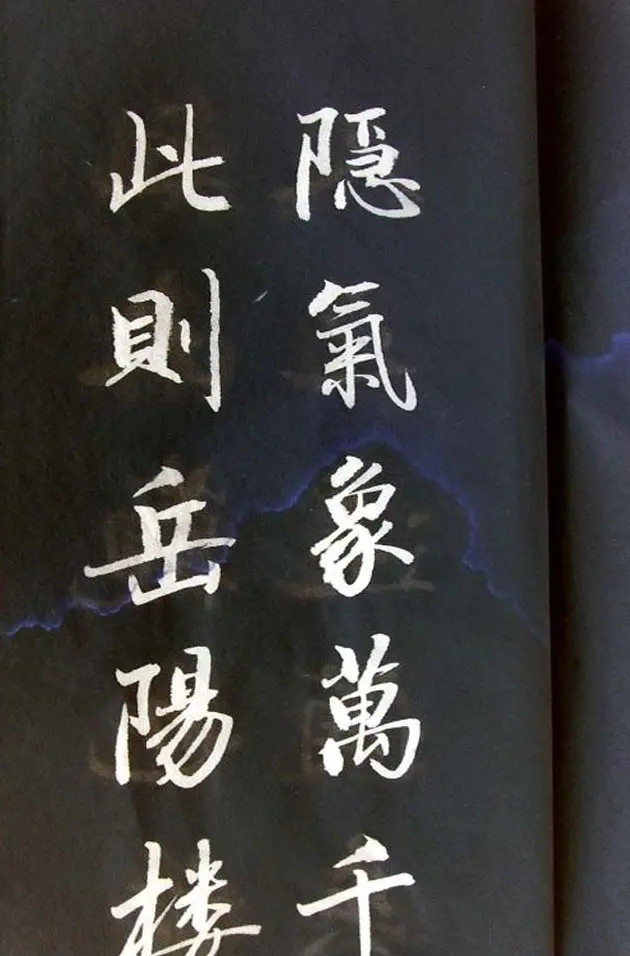 隐氣象萬千
此則岳陽楼